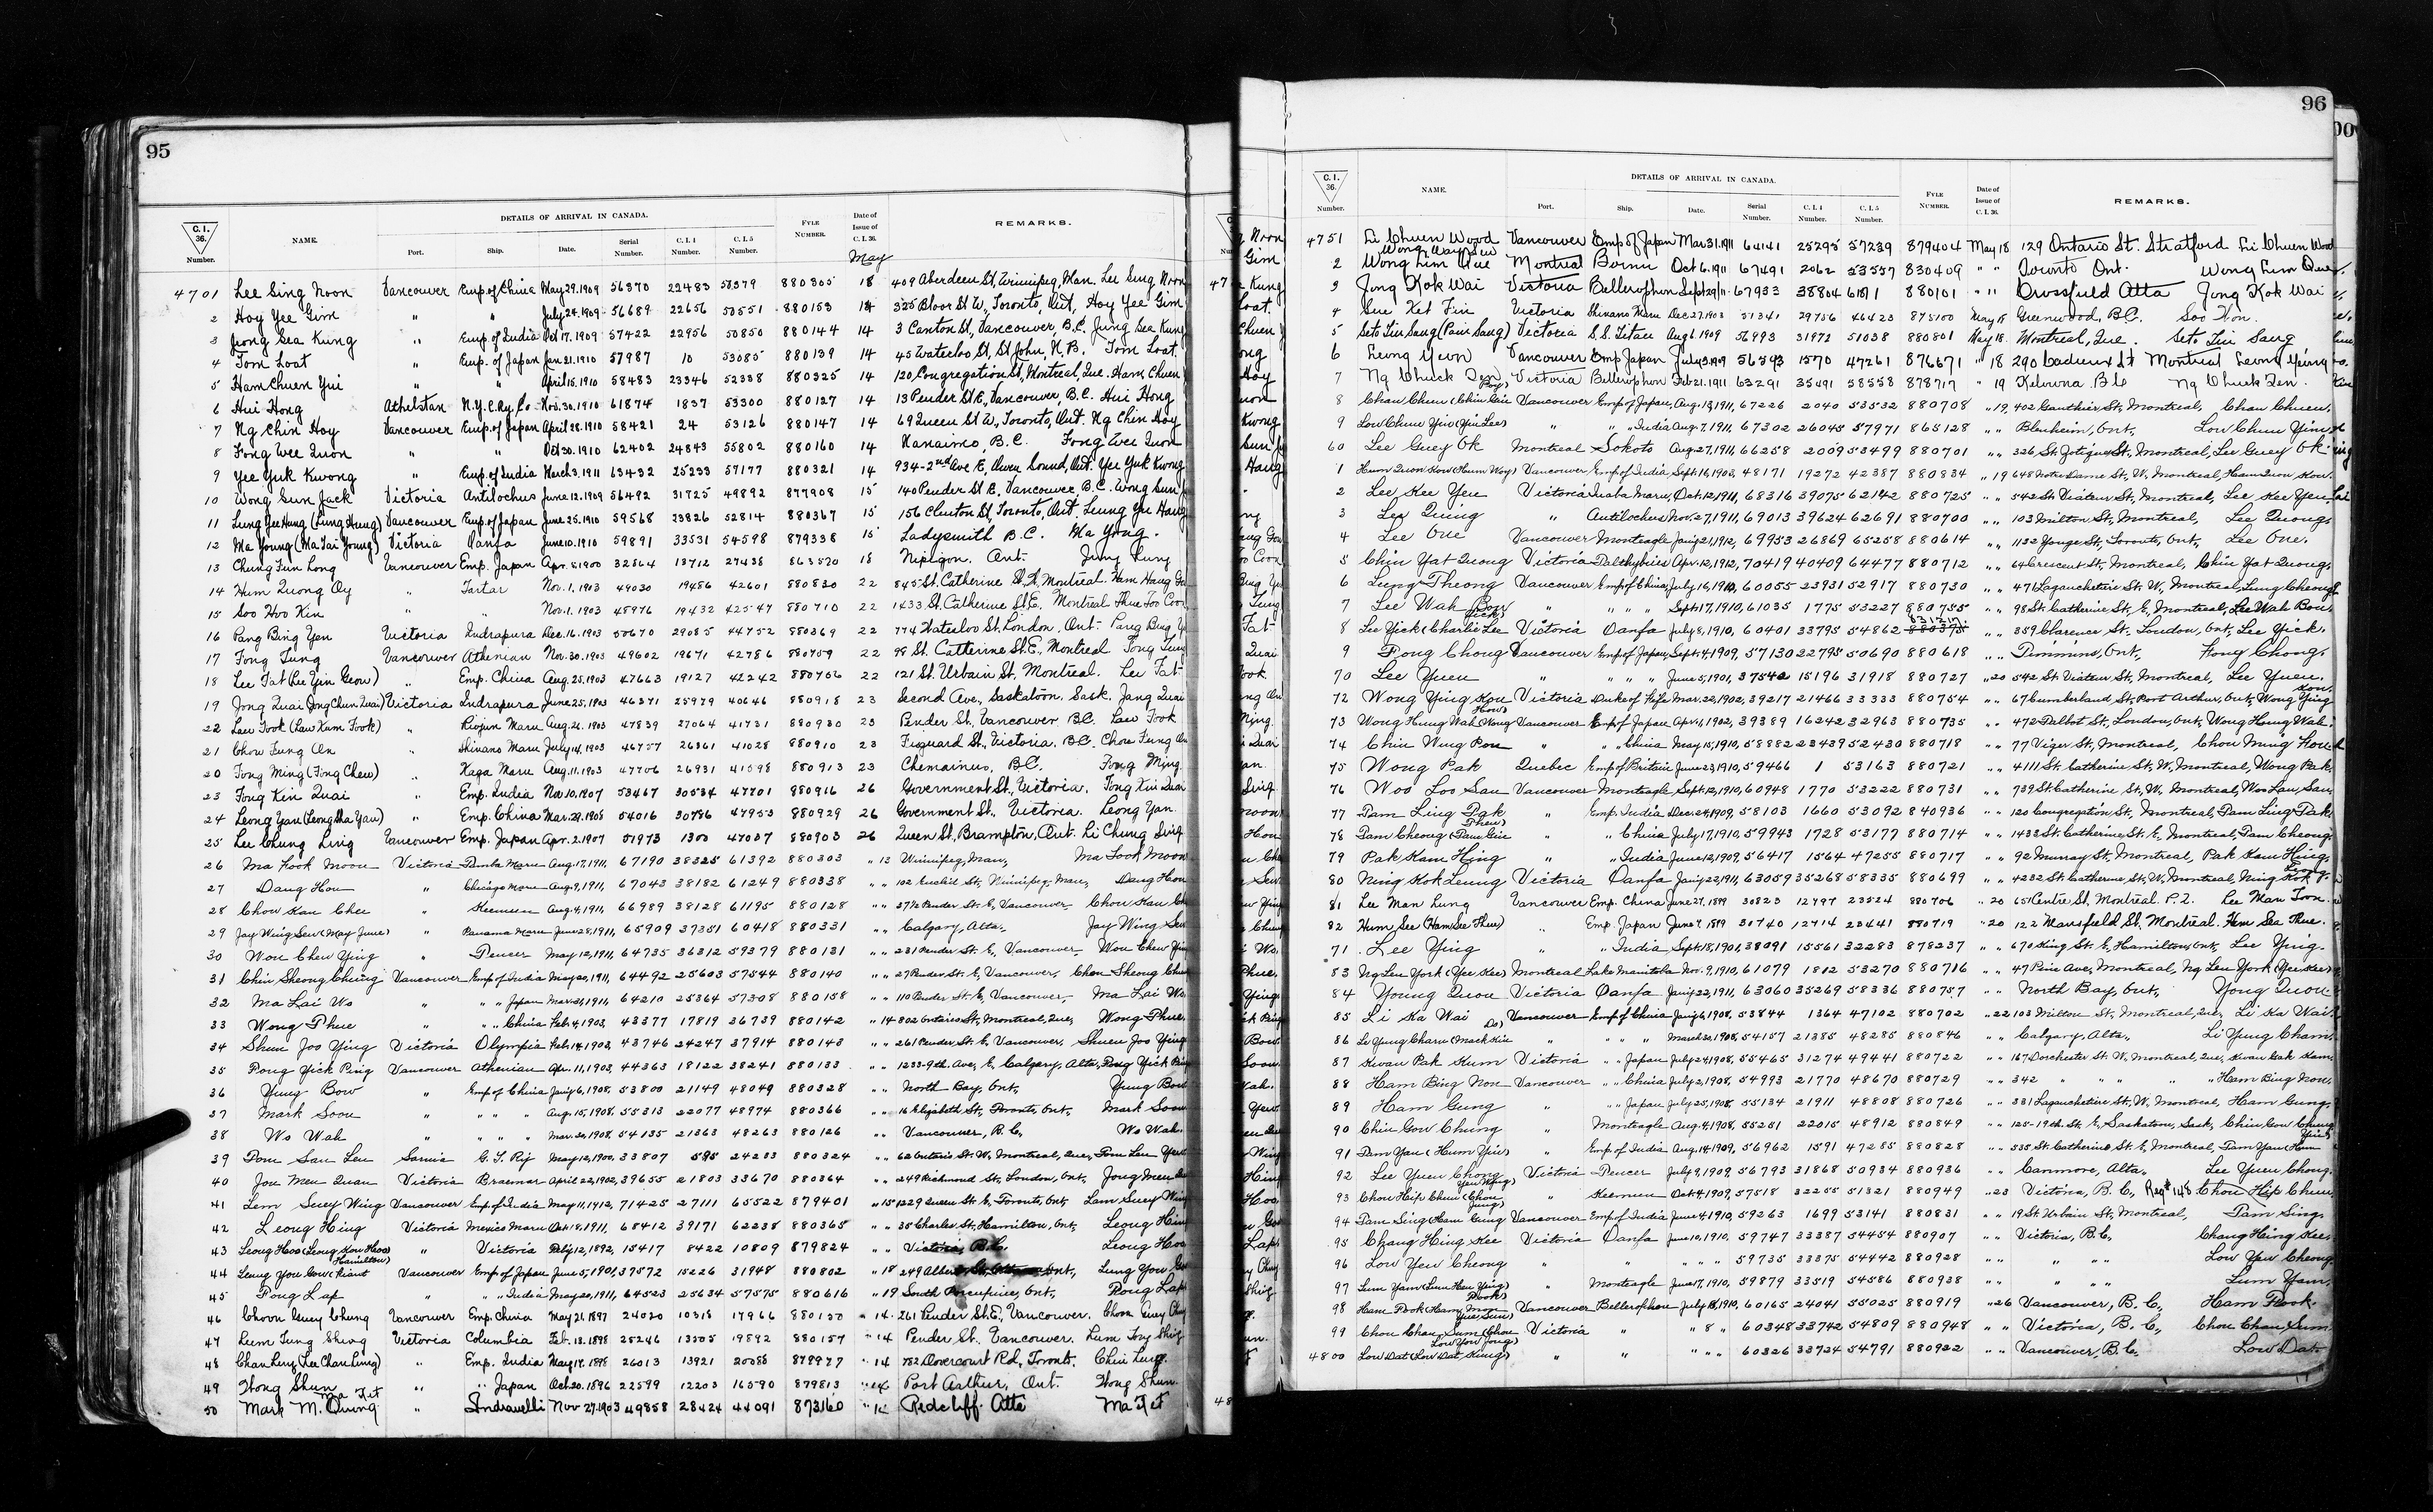 95
C.I. 36. Number. NAME. DETAILS OF ARRIVAL IN CANADA. Port. Ship. Date. Serial Number. C.I.4 Number. C.I.5 Number. FYLE NUMBER. Date of Issue of C.I.36. REMARKS.
May
4701 Lee Sing Noon Vancouver Emp of China May 29.1909 56370 22483 880305 18 409 Aberdeen St, Winnipeg, Man. Lee Sing Noon
2 Hoy Yee Gim " " July 24.1909 56689 22656 880153 325 Bloor St W, Toronto, Ont, Hoy Yee Gim
3 Jeong Sea Kung " Emp. of India Oct 17.1909 57422 22956 50850 880144 14 3 Canton St, Vancouver, B.C. Jung Sea Kung
4 Tom Loat " Emp. of Japan Jan 21.1910 57987 10 53085 880139 14 45 Waterloo St, St John, N.B. Tom Loat.
5 Ham Chuen Yui " " April 15.1910 58483 23346 52338 880325 14 120 Congregation St, Montreal, Que. Ham Chuen
6 Hui Hong Athelstan N.Y.C.Ry.Co Nov.30.1910 61874 1837 53300 880127 14 13 Pender St E, Vancouver, B.C. Hui Hong
7 Ng Chin Hoy Vancouver Emp. of Japan April 28.1910 58421 24 53126 880147 14 69 Queen St W, Toronto, Ont. Ng Chin Hoy
8 Fong Wee Quon " " Oct 30.1910 62402 24843 55802 880160 14 Nanaimo, B.C. Fong Wee Quon
9 Yee Yuk Kwong " Emp. of India March 3.1911 63432 25233 57177 880321 14 934-2nd Ave E, Owen Sound, Ont. Yee Yuk Kwong
10 Wong Sun Jack Victoria Antilochus June 12.1909 56492 31725 49892 877908 15 140 Pender St E, Vancouver, B.C. Wong Sun
11 Lung Yee Hung (Lung Hung) Vancouver Emp. of Japan June 25.1910 59568 23826 52814 880367 15 156 Clinton St, Toronto, Ont. Leung Yee Hang
12 Ma Young (Ma Tai Young) Victoria Oanfa June 10.1910 59891 33531 54598 879338 15 Ladysmith B.C. Ma Yong.
13 Chung Fun Long Vancouver Emp. Japan Apr. 8.1900 32864 13712 27438 863520 18 Nipigon. Ont.
14 Hum Quong Oy " Tartar Nov. 1, 1903 49030 19456 42601 880830 22 845 St. Catherine St. Montreal Ham Hang
15 Soo Hoo Kin " " Nov. 1. 1903 48976 19432 42547 880710 22 1433 St. Catherine St. E. Montreal
16 Pang Bing Yen Victoria Indrapura Dec. 16.1903 50670 29085 44752 880369 22 774 Waterloo St, London. Ont. Pang Bing
17 Fong Tung Vancouver Athenian Nov. 30.1903 49602 19671 42786 880759 22 98 St. Catherine St. E., Montreal Fong
18 Lee Fat (Lee Yin Geow) " Emp. China Aug. 25.1903 47663 19127 42242 880756 22 121 St. Urbain St, Montreal. Lee Fat
19 Jong Quai (Jong Chun Quai) Victoria Indrapura June 25,1903 46371 25979 40646 880918 23 Second Ave, Saskatoon. Sask. Jang Quai
22 Lau Fook (Law Kum Fook) " Riojun Maru Aug. 26.1903 47839 27064 41731 880930 23 Pender St. Vancouver. B.C. Lau Fook
21 Chow Fung On " Shinano Maru July 14.1903 46757 26361 41028 880910 23 Fisguard St., Victoria. B.C. Chow Fung On
20 Fong Ming (Fong Chew) " Kaga Maru Aug. 11.1903 47706 26931 41598 880913 23 Chemainus, B.C. Fong Ming.
23 Fong Kin Quai " Emp. India Nov 10.1907 53467 30534 47701 880916 26 Government St., Victoria. Fong Kin Quai
24 Leong Yan (Leong Sha Yan) " Emp. China Mar. 29.1908 54016 30786 47953 880929 26 Government St., Victoria. Leong Yan.
25 Lee Chung Ling Vancouver Emp. Japan Apr. 2.1907 51973 1300 47037 880903 26 Queen St, Brampton, Ont. Li Chung Sing
26 Ma Fook Moon Victoria Panama Maru Aug. 17, 1911, 67190 38325 61392 880303 " 13 Winnipeg, Man, Ma Fook Moon
27 Dang Hon " Chicago Maru Aug. 9, 1911, 67043 38182 61249 880338 " " 102 Euclid St, Winnipeg, Man, Dang Hon
28 Chow Kan Chee " Keemun Aug. 4, 1911, 66989 38128 61195 880128 " " 27½ Pender St. E, Vancouver, Chow Kan
29 Jay Wing Sew (May June) " Panama Maru June 28, 1911, 65909 37351 60418 880331 " " Calgary, Alta, Jay Wing Sew
30 Wou Chew Ying " Pencer May 12, 1911, 64735 36312 59379 880131 " " 231 Pender St. E, Vancouver, Wou Chew Yin
31 Chin Sheong Chung Vancouver Emp of India May 20, 1911, 64492 25603 57544 880140 " " 27 Pender St. E, Vancouver, Chon Sheong Chun
32 Ma Lai Wo " " " Japan Mar. 31, 1911, 64210 25364 57308 880158 " " 110 Pender St. E, Vancouver, Ma Lai Wo.
33 Wong Phue " " " China Feb. 4, 1903, 43377 17819 36739 880142 " 14 802 Ontario St, Montreal, Que, Wong Phue.
34 Shun Joo Ying Victoria Olympia Feb. 14, 1902, 43746 24247 37914 880143 " " 261 Pender St. E, Vancouver, Shuen Joo Ying
35 Pong Yick Ping Vancouver Athenian Apr. 11, 1903, 44363 18122 38241 880133 " " 1233-9th Ave, E, Calgary, Alta, Pong Yick Ping
36 Yung Bow " Emp of China Jany 6, 1908, 53800 21149 48049 880328 " " North Bay, Ont, Yung Bow
37 Mark Soon " " " " Aug. 15, 1908, 55313 22077 48974 880366 " " 16 Elizabeth St, Toronto, Ont, Mark Soon
38 Wo Wah " " " " Mar. 30, 1908, 54135 21363 48263 880126 " " Vancouver, B.C., Wo Wah.
39 Pom San Len Sarnia G. T. Ry May 12, 1900, 33807 595 24283 880324 " " 62 Ontario St. W, Montreal, Que, Pom Len
40 Jou Meu Quan Victoria Braemar April 22, 1902, 39655 21803 33670 880364 " " 249 Richmond St, London, Ont, Jong Meu
41 Lem Suey Wing Vancouver Emp of India May 11, 1912, 71425 27111 65522 879401 " 15 1229 Queen St. E, Toronto, Ont, Lam Suey Wing
42 Leong Hing Victoria Mexico Maru Oct. 18, 1911, 68412 39171 62238 880365 " " 35 Charles St, Hamilton, Ont, Leong Hing
43 Leong Hoo (Leong Kow Hoo) " Victoria July 12, 1892, 15417 8422 10809 879824 " " Victoria, B.C. Leong Hoo
(Hamilton)
44 Leung You Gow Vancouver Emp of Japan June 5, 1901, 37572 15226 31948 880802 " 18 249 Albert St, Ont, Lung You
45 Pong Lap " " " India May 20, 1911, 64523 25634 57575 880616 " 19 South Porcupine, Ont, Pong Lap
46 Vancouver Emp. China May 21. 1897 24020 10318 17966 880130 " 14. 261 Pender St. E., Vancouver.
47 Luem Tung Shing Victoria Columbia Feb. 13. 1898 25246 13505 19892 880157 " 14 Pender St. Vancouver. Lum Tong Shing
48 Chan Ling (Lee Chan Ling) " Emp. India May 17. 1898 26013 13921 20088 879977 " 14 782 Dovercourt Rd., Toronto. Chin Ling.
49 Wong Shun " " Japan Oct. 20. 1896 22599 12203 16590 879813 " 14 Port Arthur, Ont. Wong Shun.
Ma Fet
50 Mark M. Quing " Indravelli Nov 27.1903 49858 28424 44091 873160 " 14 Redcliff. Alta Ma Fet
96
C.I. 36. Number. NAME. DETAILS OF ARRIVAL IN CANADA. Port. Ship. Date. Serial Number. C.I.4 Number. C.I.5 Number. FYLE NUMBER. Date of Issue of C.I.36. REMARKS.
4751 Li Chuen Wood Vancouver Emp of Japan Mar 31. 1911 64141 25295 57239 879404 May 18 129 Ontario St. Stratford Li Chuen Wood
2 Wong Lim Que Montreal Bornu Oct 6. 1911 67491 2062 53557 830409 " " Toronto Ont. Wong Lim Que.
3 Jong Kok Wai Victoria Bellerophon Sept 29/11 67933 38804 880101 " " Crossfield Alta Jong Kok Wai
4 Sue Ket Fin Victoria Shinano Maru Dec. 27. 1903 51341 29756 45423 875100 May 18 Greenwood, B.C. Soo Kon.
5 Seto Lin Sang (Pain Sang) Victoria S.S. Titan Aug 6. 1909 56993 31972 51038 880801 May 18. Montreal, Que. Seto Lin Sang
6 Leung Yeun Vancouver Emp Japan July 3. 1909 56593 1570 47261 876671 " 18 290 Cadieux St Montreal Leung Yeung
7 Ng Chuck Den Victoria Bellerophon Feb 21. 1911 63291 35491 58558 878717 " 19 Kelowna B.C. Ng Chuck Zen.
8 Chan Chuen (Chin Gin Vancouver Emp of Japan, Aug. 13, 1911, 67226 2040 53532 880708 " 19, 402 Gauthier St, Montreal, Chan Chuen.
9 Low Chun Yin (Yin Lee) " " " India Aug. 7, 1911, 67302 26045 57971 865128 " " Blenheim, Ont, Low Chun Ying
60 Lee Guey Ok Montreal Sokoto Aug. 27, 1911, 66258 2009 53499 880701 " " 326 St. Zotique St, Montreal, Lee Guey Ok
1 Hum Quon Kow (Hum Woy) Vancouver Emp of India, Sept. 16, 1903, 48171 19272 42387 880834 " 19 648 Notre Dame St. W, Montreal, Ham Quon Kow
2 Lee Kee Yeu Victoria Inaba Maru, Oct. 12, 1911, 68316 39075 62142 880725 " " 542 St. Viateur St, Montreal, Lee Kee Yeu
3 Lee Quing " Antilochus Nov. 27, 1911, 69013 39624 62691 880700 " " 103 Milton St, Montreal, Lee Quong.
4 Lee One Vancouver Monteagle Jany 21, 1912, 69953 26869 65258 880614 " " 1132 Yonge St, Toronto, Ont, Lee One.
5 Chin Yat Quong Victoria Talthybius Apr. 12, 1912, 70419 40409 64477 880712 " " 64 Crescent St, Montreal, Chin Yat Quong.
6 Lung Theong Vancouver Emp of China, July 16, 1910, 60055 23931 52917 880730 " " 471 Lagauchetiere St. W, Montreal, Lung Cheong
7 Lee Wah Bow " " " " Sept. 17, 1910, 61035 1775 53227 880755 " " 98 St. Catherine St, E, Montreal, Lee Wah Bow.
8 Lee Yick (Charlie Lee Yick) Victoria Oanfa July 8, 1910, 60401 33795 54862 " " 359 Clarence St, London, Ont, Lee Yick.
9 Fong Chong Vancouver Emp of Japan, Sept. 4, 1909, 57130 22795 50690 880618 " " Timmins, Ont, Fong Chong.
70 Lee Yuen " " " " June 5, 1901, 37542 15196 31918 880727 " 20 542 St. Viateur St, Montreal, Lee Yuen.
72 Wong Ying Kou Victoria Duke of Fife Mar. 22, 1902, 39217 21466 33333 880754 " " 67 Cumberland St, Port Arthur, Ont, Wong Ying Kou
73 Wong Hung Wah (Wong How) Vancouver Emp of Japan Apr. 1, 1902, 39389 16242 32963 880735 " " 472 Talbot St, London, Ont, Wong Hung Wah.
74 Chin Wing Pou " " " China May 15, 1910, 58882 23439 52430 880718 " " 77 Viger St, Montreal, Chou Ming
75 Wong Pak Quebec Emp of Britain June 23, 1910, 59466 1 53163 880721 " " 4111 St. Catherine St, W, Montreal, Wong Pak.
76 Woo Loo San Vancouver Monteagle Sept. 12, 1910, 60948 1770 53222 880731 " " 739 St. Catherine St, W, Montreal, Woo Lau San
77 Pam Ling Pak " Emp. India Dec. 24, 1909, 58103 1660 53092 840936 " " 120 Congregation St, Montreal, Pam Ling Pak.
78 Pam Cheong (Pam Gin " " China July 17, 1910, 59943 1728 53177 880714 " " 1433 St. Catherine St. E, Montreal, Pam Cheong.
79 Pak Kam Hing " " India June 12, 1909, 56417 1564 47255 880717 " " 92 Murray St, Montreal, Pak Kam Hing.
80 Ning Kok Leung Victoria Oanfa Jany 22, 1911, 63059 35268 58335 880699 " " 4232 St. Catherine St, W, Montreal, Ning Kok
81 Lee Man Lung Vancouver Emp. China June 27, 1899 30823 12797 23524 880706 " 20 651 Centre St, Montreal. P.Q. Lee Man Toon.
82 Hum See (Ham See Thue) " Emp. Japan June 7, 1899 30740 12714 23441 880719 " 20 122 Mansfield St, Montreal. Hm See Thue.
71 Lee Ying " " India Sept. 18, 1901, 38091 15561 32283 878237 " " 670 King St. E, Hamilton, Ont, Lee Ying.
83 Ng Leu York (Yee Kee) Montreal Lake Manitoba Nov. 9, 1910, 61079 1812 53270 880716 " " 47 Pine Ave, Montreal, Ng Leu York (Yee Kee)
84 Young Quou Victoria Oanfa Jany 22, 1911, 63060 35269 58336 880757 " " North Bay, Ont, Yong Quou
85 Li Ka Wai Vancouver Emp of China Jany 6, 1908, 53844 1364 47102 880702 " 22 103 Milton St, Montreal, Que, Li Ka Wai.
86 Li Yung Cham (Mack Kin Do) " " " " March 30, 1908, 54157 21385 48285 880846 " " Calgary, Alta, Li Yung Cham.
87 Kwan Pak Kum Victoria " " Japan July 24, 1908, 55465 31274 49441 880722 " " 167 Dorchester St. W, Montreal, Que, Kwan Pak Kam
88 Ham Bing Nou Vancouver " " China July 2, 1908, 54993 21770 48670 880729 " " 342 " " " " Ham Bing Nou.
89 Ham Gung " " " Japan July 25, 1908, 55134 21911 48808 880726 " " 381 Lagauchetiere St, W, Montreal, Ham Gung.
90 Chin Gow Chung " Monteagle Aug. 4, 1908, 55251 22015 48912 880849 " " 125-19th St. E, Saskatoon, Sask, Chin Gow Chung
91 Pam Yan (Hum Yin) " Emp of India Aug. 14, 1909, 56962 1591 47285 880828 " " 535 St. Catherine St. E, Montreal, Pam Yan (Hum Yin)
92 Lee Yuen Chong Victoria Pencer July 9, 1909, 56793 31868 50934 880936 " " Canmore, Alta, Lee Yuen Chong.
93 Chou Hip Chun (Chou " Keemun Oct. 4, 1909, 57518 32255 51321 880949 " 23 Victoria, B.C, Reg# 148 Chou Hip Chun
94 Pam Sing (Ham Gung Vancouver Emp of India June 4, 1910, 59263 1699 53141 880831 " " 19 St Urbain St, Montreal, Pam Sing.
95 Chang Hing Kee Victoria Oanfa June 10, 1910, 59747 33387 54454 880907 " " Victoria, B.C, Chang Hing Kee.
96 Low Yew Cheong " " " " " 59735 33375 54442 880928 " " " " Low Yew Cheong
97 Lum Yam (Lum Hen Ying) " Monteagle June 17, 1910, 59879 33519 54586 880938 " " " " Lum Yam.
98 Ham Pook (Ham Moon Pook) Vancouver Bellerophon July 18, 1910, 60165 24041 55025 880919 " 26 Vancouver, B.C, Ham Pook.
99 Chou Chan Sum (Chou Victoria " " 8 " 60348 33742 54809 880948 " " Victoria, B.C, Chou Chan Sum
4800 Low Dat (Low Dat Kung) " " " " 60326 33724 54791 880922 " " Vancouver, B.C. Low Dat